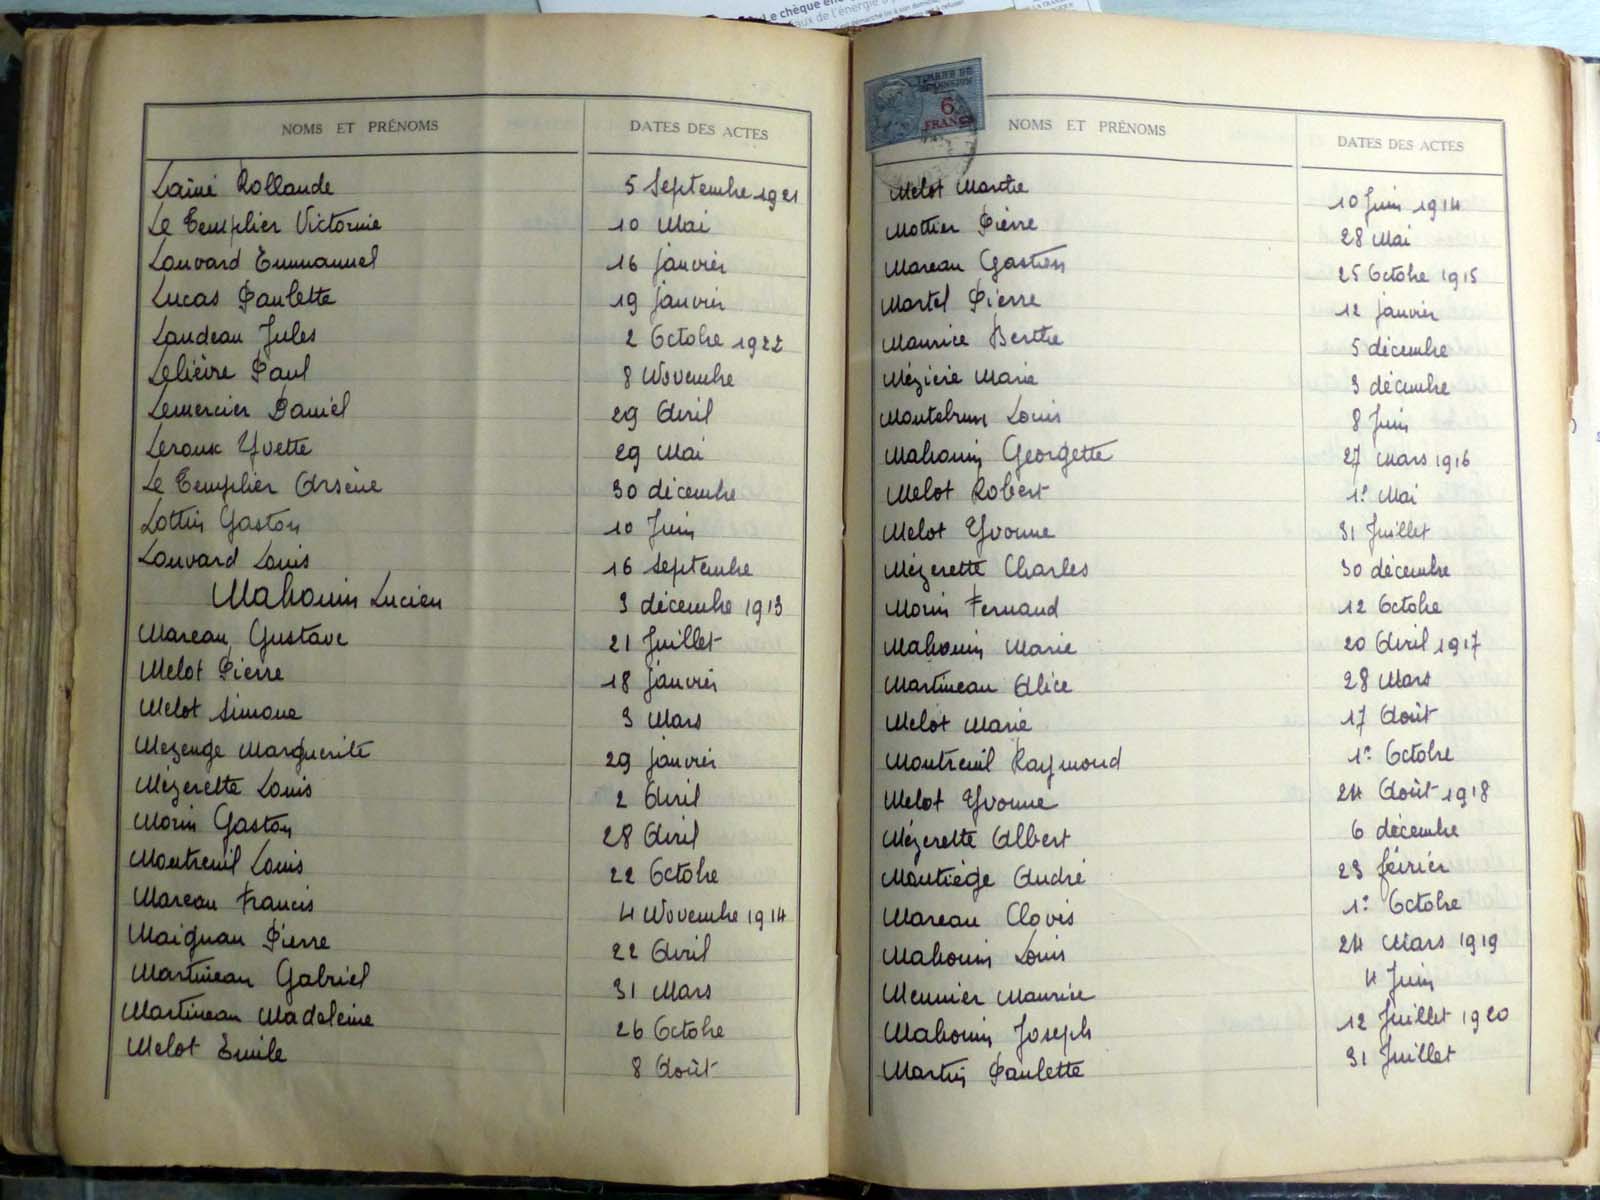 Le chèque éne
aux de l'énergie
NOMS ET PRÉNOMS DATES DES ACTES
Lainé Rollande 5 Septembre 1921
Le Templier Victorine 10 Mai
Louvard Emmanuel 16 janvier
Lucas Paulette 19 janvier
Landeau Jules 2 Octobre 1922
Lelièvre Paul 8 Novembre
Lemercier Daniel 29 Avril
Leroux Yvette 29 Mai
Le Templier Arsène 30 décembre
Lottin Gaston 10 Juin
Louvard Louis 16 Septembre
Mahouin Lucien 3 décembre 1913
Mareau Gustave 21 Juillet
Melot Pierre 18 janvier
Melot Simone 3 Mars
Mezenge Marguerite 29 janvier
Mézerette Louis 2 Avril
Morin Gaston 28 Avril
Montreuil Louis 22 Octobre
Mareau Francis 4 Novembre 1914
Maignan Pierre 22 Avril
Martineau Gabriel 31 Mars
Martineau Madeleine 26 Octobre
Melot Emile 8 Août
6
FRANCS
NOMS ET PRÉNOMS DATES DES ACTES
Melot Marthe 10 Juin 1914
Mottier Pierre 28 Mai
Mareau Gaston 25 Octobre 1915
Martel Pierre 12 janvier
Maurice Berthe 5 décembre
Mézière Marie 3 décembre
Montebrun Louis 8 Juin
Mahouin Georgette 27 Mars 1916
Melot Robert 1er Mai
Melot Yvonne 31 Juillet
Mézerette Charles 30 décembre
Morin Fernand 12 Octobre
Mahouin Marie 20 Avril 1917
Martineau Alice 28 Mars
Melot Marie 17 Août
Montreuil Raymond 1er Octobre
Melot Yvonne 24 Août 1918
Mézerette Albert 6 décembre
Montiège André 23 février
Mareau Clovis 1er Octobre
Mahouin Louis 24 Mars 1919
Meunier Maurice 4 Juin
Mahouin Joseph 12 Juillet 1920
Martin Paulette 31 Juillet